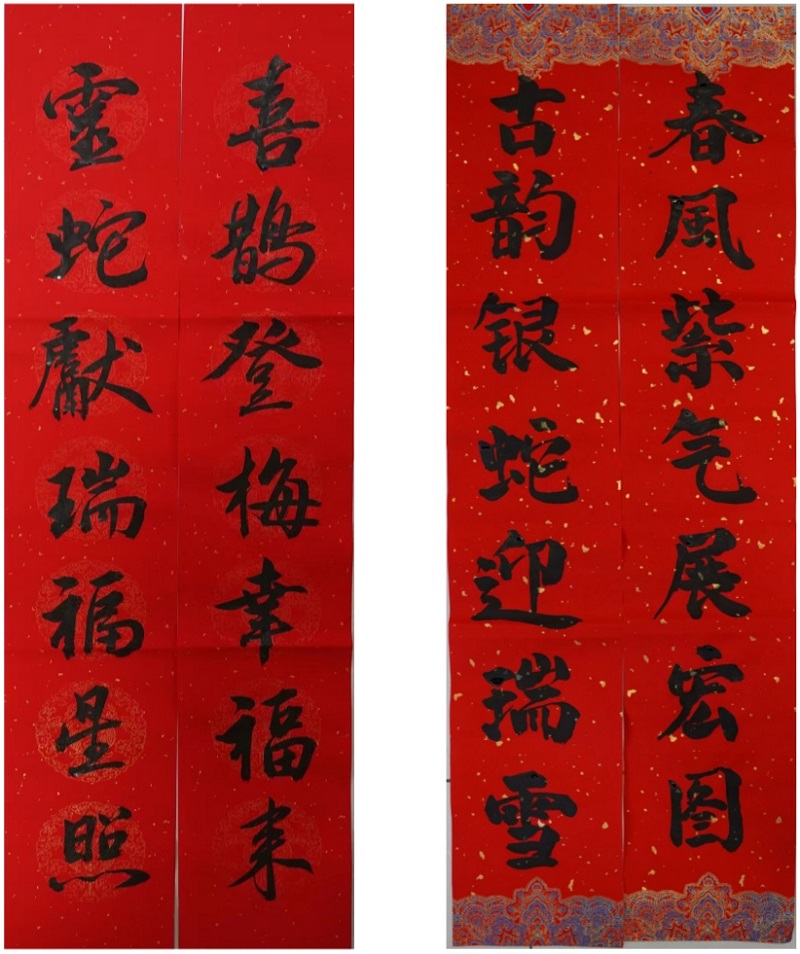 喜鹊登梅幸福来
靈蛇獻瑞福星照
春風紫气展宏图
古韵银蛇迎瑞雪